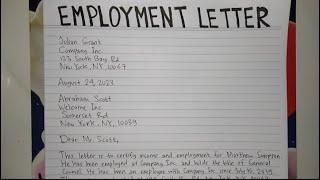 EMPLOYMENT LETTER
Julian Grant
Company Inc.
123 South Bay Rd
New York, NY, 10067
August 29, 2023
Abraham Scott
Welcome Inc.
Somerset Rd
New York, NY, 10039
Dear Mr. Scott,
This letter is to certify income and employment for Matthew Simpson
He has been employed at Company Inc. and holds the title of General
Counsel. He has been an employee with Company Inc since July 16, 2019